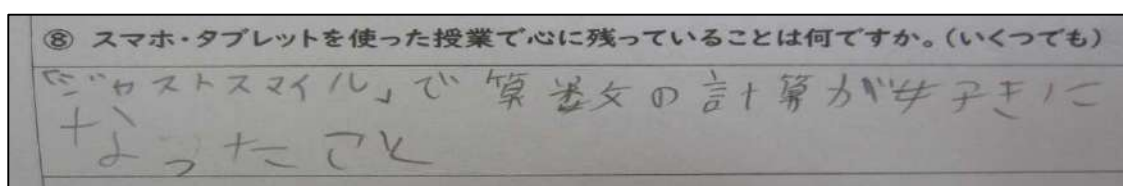 ⑧ スマホ・タブレットを使った授業で心に残っていることは何ですか。(いくつでも)
「ジャストスマイル」で 算数の計算が好きに
なったこと